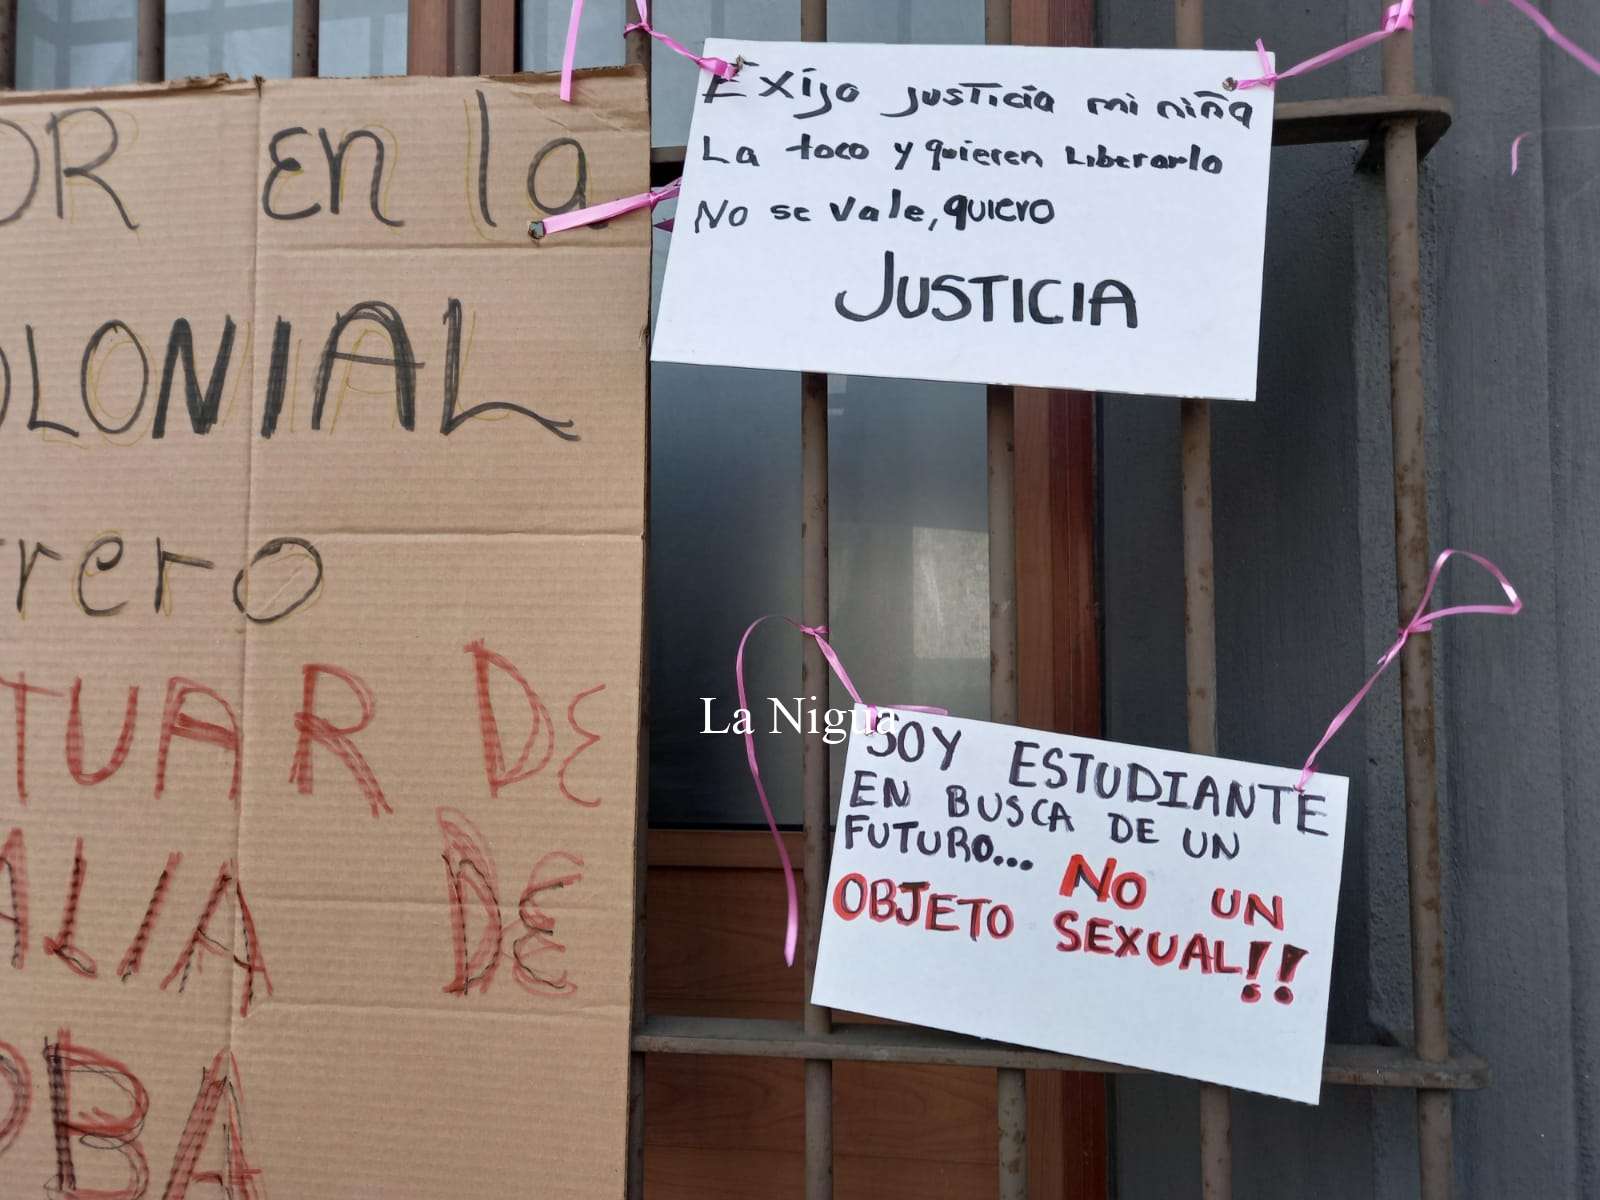 OR en la
OLONIAL
rrero
TUAR DE
ALIA DE
OBA
Exijo justicia mi niña
La toco y quieren Liberarlo
No se vale, quiero
JUSTICIA
La Nigua
SOY ESTUDIANTE
EN BUSCA DE UN
FUTURO... NO UN
OBJETO SEXUAL!!